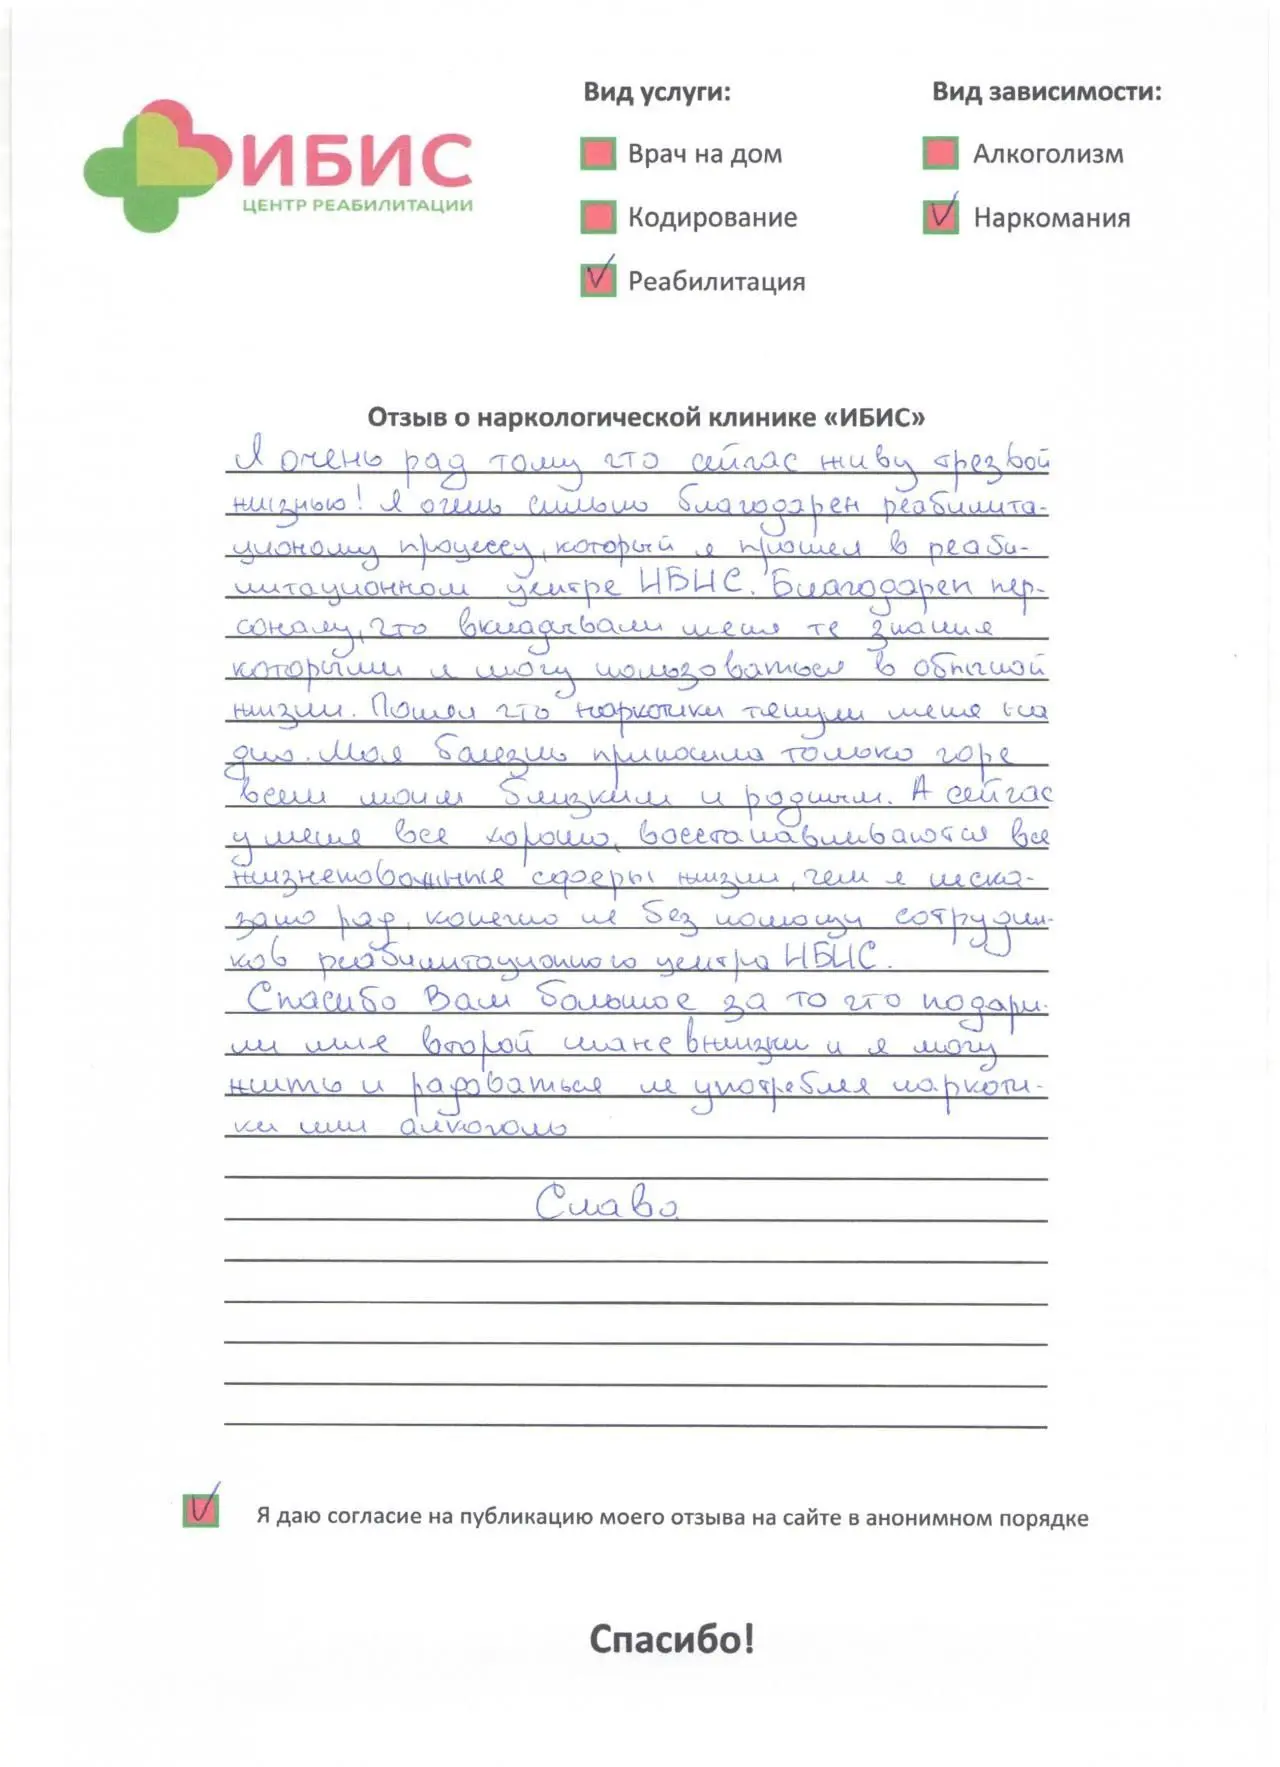 ИБИС
ЦЕНТР РЕАБИЛИТАЦИИ
Вид услуги:
Врач на дом
Кодирование
Реабилитация
Вид зависимости:
Алкоголизм
Наркомания
Отзыв о наркологической клинике «ИБИС»
Я очень рад тому что сейчас живу трезвой
жизнью! Я очень сильно благодарен реабилита-
ционому процессу, который я прошел в реаби-
литационном центре ИБИС. Благодарен пер-
соналу, что вкладывали меня те знания
которыми я могу пользоваться в обычной
жизни. Понял что наркотики тянули меня на
дно. Моя болезнь приносила только горе
всем моим близким и родным. А сейчас
у меня все хорошо, восстанавливаются все
жизнеповажные сферы жизни, чем я неска-
зано рад, конечно не без помощи сотрудни-
ков реабилитационного центра ИБИС.
Спасибо Вам большое за то что подари-
ли мне второй шанс в жизни и я могу
жить и радоваться не употребляя наркоти-
ки или алкоголь
Слава
Я даю согласие на публикацию моего отзыва на сайте в анонимном порядке
Спасибо!